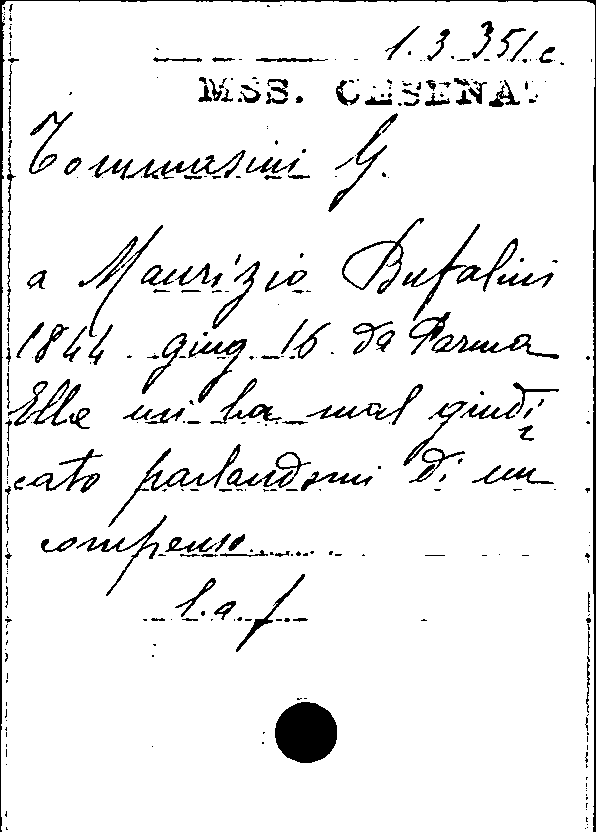 1.3.351.c.
MSS. CESENAT
Tommasini G.
a Maurizio Bufalini
1844 giug. 16 da Parma
Ella mi ha mal giudi
cato parlandomi di un
compenso......
l.a.f.